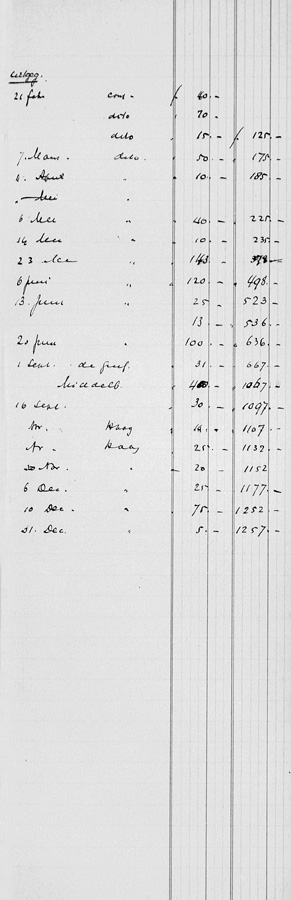 21 feb cont - f 40 -
dito 70 -
dito 15 - f 125 -
7 Maart dito 50 - 175 -
4 April " 10 - 185 -
Mei "
6 Mei " 40 - 225 -
14 Mei " 10 - 235 -
23 Mei " 143 - 378 -
6 Juni " 120 - 498 -
13 Juni " 25 - 523 -
13 - 536 -
20 Juni " 100 - 636 -
1 Sept. 31 - 667 -
Middelb. 400 - 1067 -
16 Sept. 30 - 1097 -
Nov. Haag 10 - 1107 -
Nov - Haag 25 - 1132 -
20 Nov. " 20 - 1152
6 Dec. " 25 - 1177 -
10 Dec. " 75 - 1252 -
31 Dec. " 5 - 1257 -